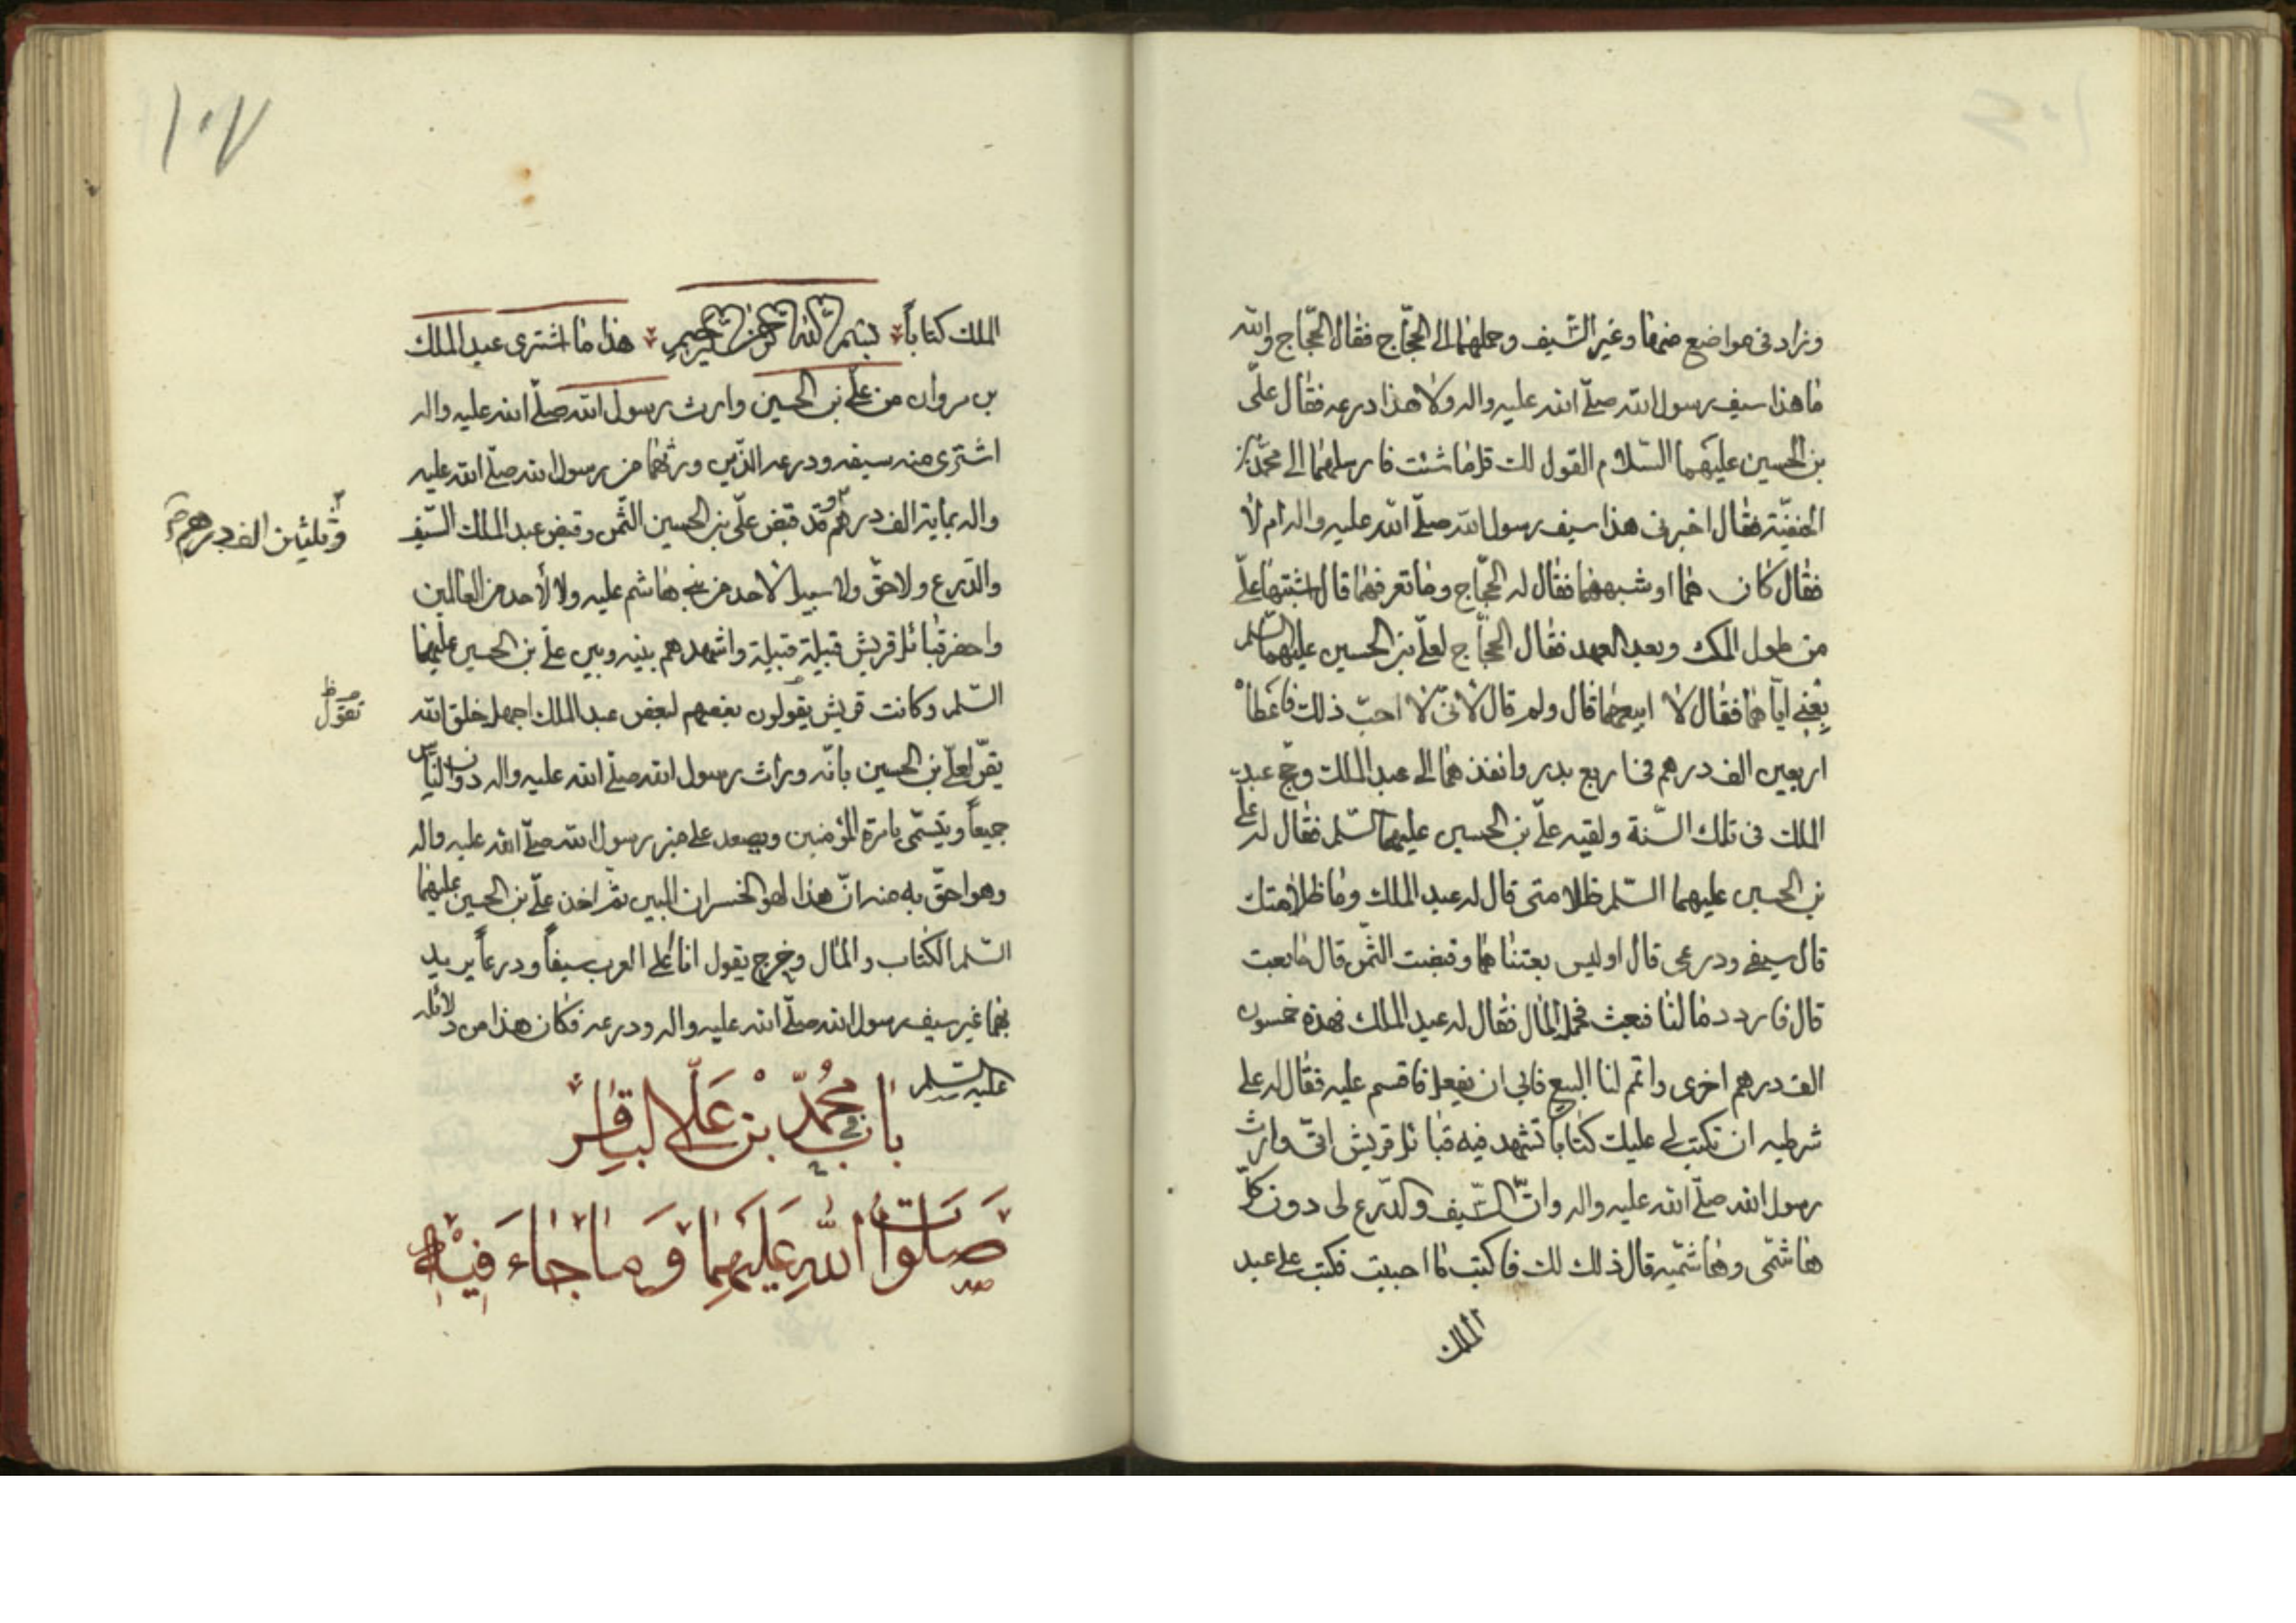 وزاد في مواضع منها وغير السّيف وحملهما الى الحجّاج فقال الحجّاج والله
ما هذا سيف رسول الله صلّى الله عليه واله ولا هذا درعه فقال علىّ
بن الحسين عليهما السّلام القول لك قل ما شئت فارسلهما الى محمّد بن
الحنفيّة فقال اخبرنى هذا سيف رسول الله صلّى الله عليه واله ام لا
فقال كان هما او شبههما فقال له الحجّاج وما تعرفهما قال اشبتها علىّ
من طول المكث وبعد العهد فقال الحجّاج لعلّى بن الحسين عليهما السّلم
بعنى ايّاهما فقال لا ابيعهما قال ولم قال لانّى لا احبّ ذلك فاعطاه
اربعين الف درهم فى اربع بدر وانفذ هما الى عبد الملك وحجّ عبد
الملك فى تلك السّنة ولقيه علىّ بن الحسين عليهما السّلم فقال له على
بن الحسين عليهما السّلم ظلامتى قال له عبد الملك وما ظلامتك
قال سيفى ودرعى قال اوليس بعتناهما وقبضت الثّمن قال ما بعت
قال فاردد مالنا فبعث فحمل المال فقال له عبد الملك فهذه خمسون
الف درهم اخرى واتم لنا البيع فابى ان يفعل فاقسم عليه فقال له على
شرطيه ان تكتب لى عليك كتابا تشهد فيه قبائل قريش انّى وارث
رسول الله صلّى الله عليه واله وانّ السّيف والدّرع لى دون كلّ
هاشمّى وهاشمّيه قال ذلك لك فاكتب ما احببت فكتب على عبد
الملك
١٠٧
الملك كتاباً بسم الله الرحمن الرحيم هذا ما اشترى عبد الملك
بن مروان من علّى بن الحسين وارث رسول الله صلّى الله عليه واله
اشترى منه سيفه ودرعه الذّين ورثهما من رسول الله صلّى الله عليه
واله بماية الف درهم وقد قبض علّى بن الحسين الثّمن وقبض عبد الملك السّيف
وثلثين الف درهم صح
والدّرع ولا حقّ ولا سبيل لاحد من بنى هاشم عليه ولا لأحد من العالمين
واحضر قبائل قريش قبيلة قبيلة واشهدهم بينه وبين علىّ بن الحسين عليهما
السّلم وكانت قريش يقولون بعضهم لبعض عبد الملك اجهل خلق الله
تقول
يقرّ لعلّى بن الحسين بانّه وراث رسول الله صلّى الله عليه واله دون النّاس
جميعاً ويتسمّى بامرة المؤمنين ويصعد على منبر رسول الله صلّى الله عليه واله
وهو احقّ به منه انّ هذا لهو الخسران المبين ثمّ اخذ علىّ بن الحسين عليهما
السّلم الكتاب والمال وخرج يقول انا على العرب سيفاً ودرعاً يريد
بهما غير سيف رسول الله صلّى الله عليه واله ودرعه فكان هذا من دلائله
عليه السّلم
باب فى محمّد بن علّى الباقر
صلوات الله عليهما وما جاء فيه